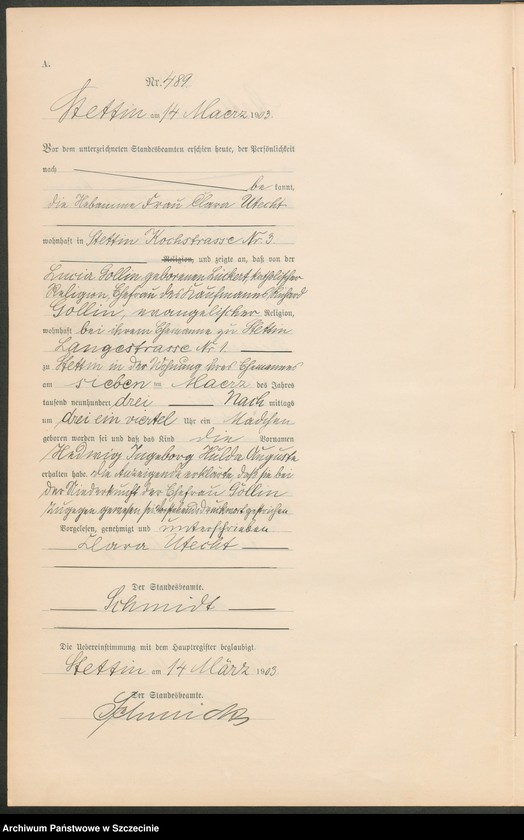 A.
Nr. 489.
Stettin am 14 Maerz 1903.
Vor dem unterzeichneten Standesbeamten erschien heute, der Persönlichkeit
nach
be kannt,
die Hebamme Frau Clara Utecht
wohnhaft in Stettin Kochstrasse Nr. 3
Religion, und zeigte an, daß von der
Lucia Gollin geborenen Lückert, katholischer
Religion, Ehefrau des Kaufmannes Richard
Gollin, evangelischer Religion,
wohnhaft bei ihrem Ehemanne zu Stettin
Langestrasse Nr. 1.
zu Stettin in der Wohnung ihres Ehemannes
am sieben ten Maerz des Jahres
tausend neunhundert drei Nach mittags
um drei ein viertel Uhr ein Mädchen
geboren worden sei und daß das Kind die Vornamen
Hedwig Ingeborg Hulda Auguste
erhalten habe. Die Anzeigende erklärte, daß sie bei
der Niederkunft der Ehefrau Gollin
zugegen gewesen sei. Vorstehend Druckwort gestrichen.
Vorgelesen, genehmigt und unterschrieben
Clara Utecht
Der Standesbeamte.
Schmidt
Die Uebereinstimmung mit dem Hauptregister beglaubigt.
Stettin am 14 März 1903.
Der Standesbeamte.
Schmidt
Archiwum Państwowe w Szczecinie